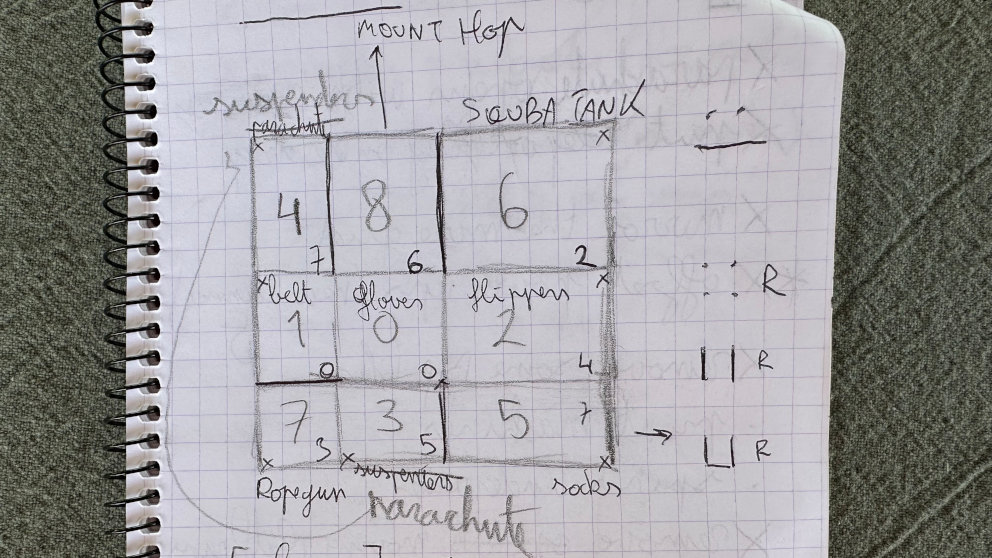 MOUNT Hop
suspenders
parachute
SCUBA TANK
4 8 6
7 6 2
R
belt gloves flippers
1 0 2
0 0 4
R
7 3 5 7
3 5
R
suspenders
Ropegun socks
Parachute